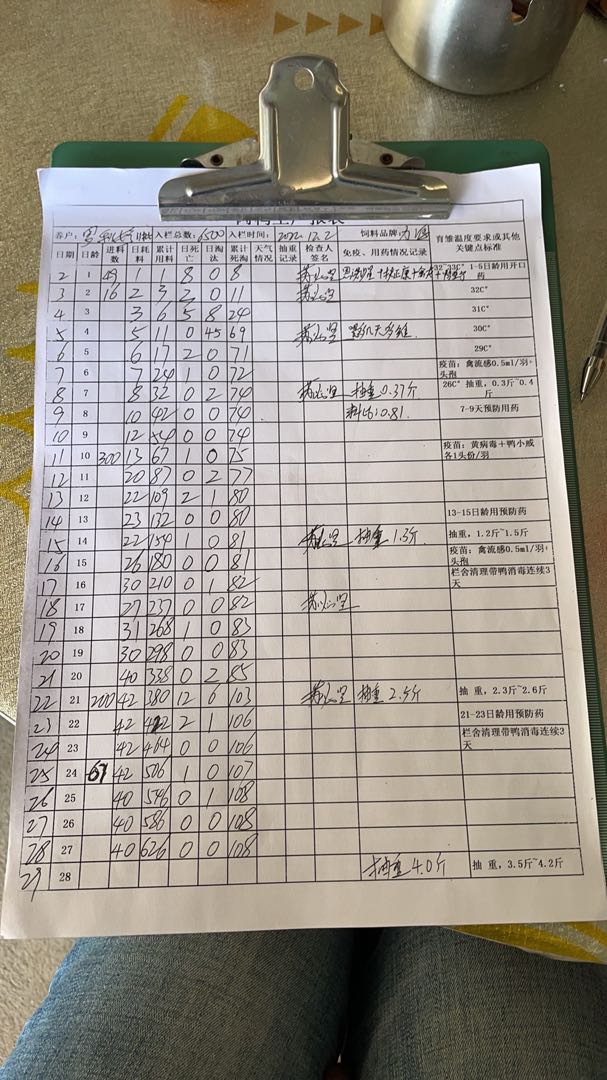 养户: 批 入栏总数: 6500 入栏时间: 2022.12.2 饲料品牌: 育雏温度要求或其他关键点标准
日期 日龄 进料数 日耗料 累计用料 日死亡 日淘汰 累计死淘 天气情况 抽重记录 检查人签名 免疫、用药情况记录
2 1 49 1 1 8 0 8 32~33C° 1-5日龄用开口药
3 2 16 2 3 3 0 11 32C°
4 3 3 6 5 8 24 31C°
5 4 5 11 0 45 69 30C°
6 5 6 17 2 0 71 29C°
7 6 7 24 1 0 72 疫苗：禽流感0.5ml/羽+头孢
8 7 8 32 0 2 74 抽重0.37斤 26C° 抽重，0.3斤~0.4斤
9 8 10 42 0 0 74 料比:0.81 7-9天预防用药
10 9 12 54 0 0 74
11 10 300 13 67 1 0 75 疫苗：黄病毒+鸭小戚各1头份/羽
12 11 20 87 0 2 77
13 12 22 109 2 1 80
14 13 23 132 0 0 80 13-15日龄用预防药
15 14 22 154 1 0 81 抽重 1.3斤 抽重，1.2斤~1.5斤
16 15 26 180 0 0 81 疫苗：禽流感0.5ml/羽+头孢
17 16 30 210 0 1 82 栏舍清理带鸭消毒连续3天
18 17 27 237 0 0 82
19 18 31 268 1 0 83
20 19 30 298 0 0 83
21 20 40 338 0 2 85
22 21 200 42 380 12 6 103 抽重 2.5斤 抽 重，2.3斤~2.6斤
23 22 42 422 2 1 106 21-23日龄用预防药
24 23 42 464 0 0 106 栏舍清理带鸭消毒连续3天
25 24 67 42 506 1 0 107
26 25 40 546 0 1 108
27 26 40 586 0 0 108
28 27 40 626 0 0 108
29 28 抽重 4.0斤 抽 重，3.5斤~4.2斤